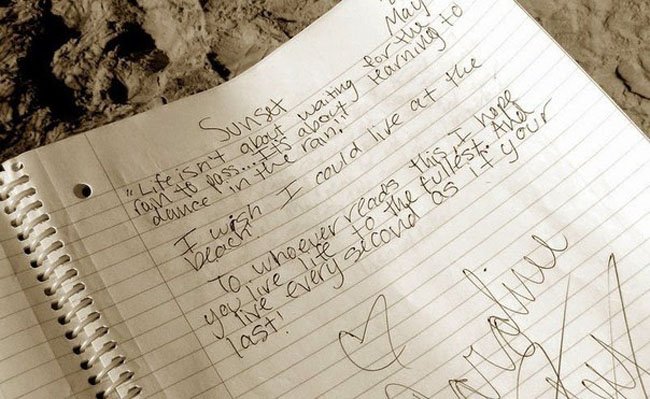 May
Sunset
"Life isn't about waiting for the
rain to pass....it's about learning to
dance in the rain."
I wish I could live at the
beach
To whoever reads this, I hope
you live life to the fullest. And
live every second as if your
last!